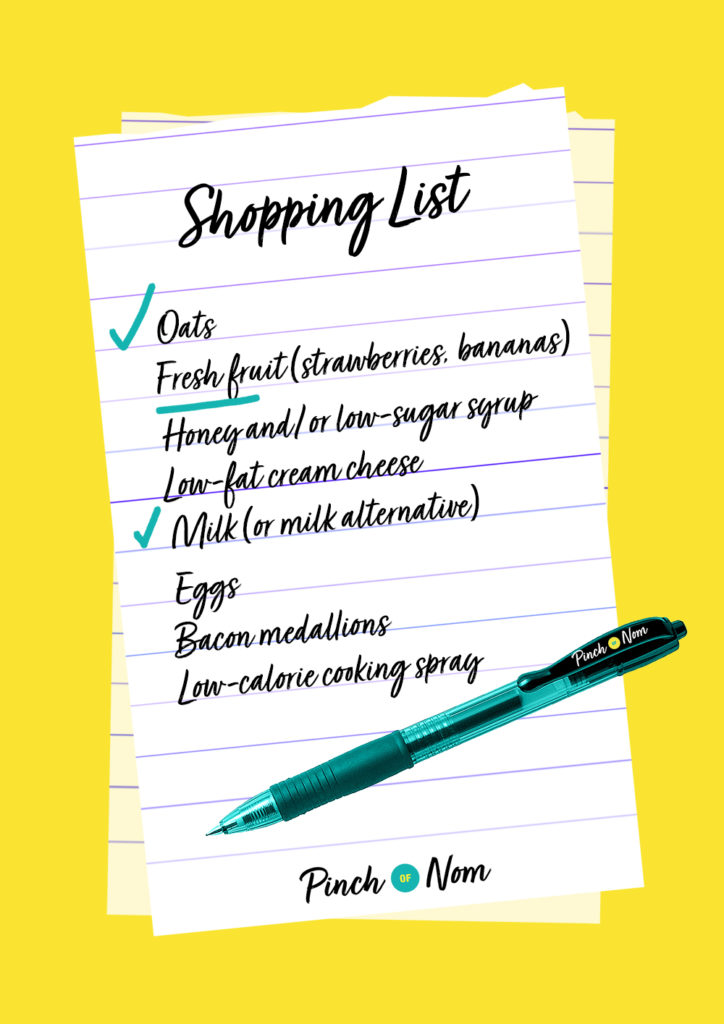 Shopping List
Oats
Fresh fruit (strawberries, bananas)
Honey and/or low-sugar syrup
Low-fat cream cheese
Milk (or milk alternative)
Eggs
Bacon medallions
Low-calorie cooking spray
Pinch OF Nom
Pinch OF Nom